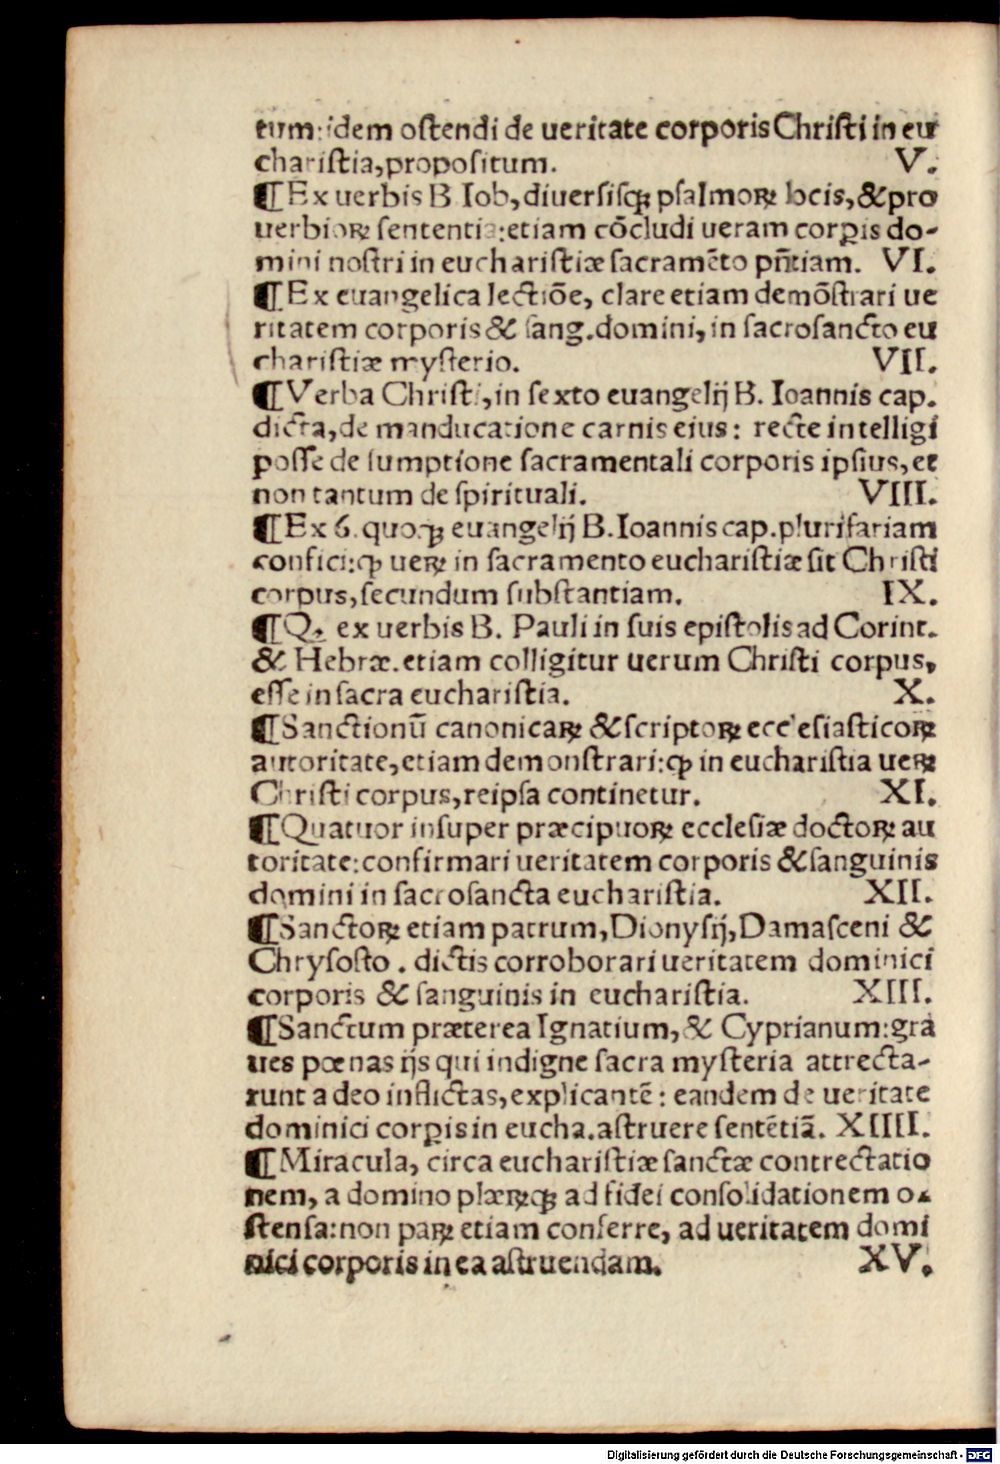 tum:idem ostendi de ueritate corporis Christi in eu
charistia,propositum. V.
¶Ex uerbis B Iob,diuersisqꝫ psalmoꝝ locis,&pro
uerbioꝝ sententia:etiam cōcludi ueram corꝑis do-
mini nostri in eucharistiæ sacramēto pñtiam. VI.
¶Ex euangelica lectiōe, clare etiam demōstrari ue
ritatem corporis & sang.domini, in sacrosancto eu
charistiæ mysterio. VII.
¶Verba Christi,in sexto euangelij B. Ioannis cap.
dicta,de manducatione carnis eius: recte intelligi
posse de sumptione sacramentali corporis ipsius,et
non tantum de spirituali. VIII.
¶Ex 6. quoqꝫ euangelij B.Ioannis cap.plurifariam
confici:ꝙ ueꝝ in sacramento eucharistiæ sit Christi
corpus,secundum substantiam. IX.
¶Q. ex uerbis B. Pauli in suis epistolis ad Corint.
& Hebræ.etiam colligitur uerum Christi corpus,
esse in sacra eucharistia. X.
¶Sanctionū canonicaꝝ &scriptoꝝ ecclesiasticoꝝ
autoritate,etiam demonstrari:ꝙ in eucharistia ueꝝ
Christi corpus,reipsa continetur. XI.
¶Quatuor insuper præcipuoꝝ ecclesiæ doctoꝝ au
toritate:confirmari ueritatem corporis &sanguinis
domini in sacrosancta eucharistia. XII.
¶Sanctoꝝ etiam patrum,Dionysij,Damasceni &
Chrysosto. dictis corroborari ueritatem dominici
corporis & sanguinis in eucharistia. XIII.
¶Sanctum præterea Ignatium,& Cyprianum:gra
ues pœnas ijs qui indigne sacra mysteria attrecta-
runt adeo inflictas,explicantē: eandem de ueritate
dominici corꝑis in eucha.astruere sentētiā. XIIII.
¶Miracula, circa eucharistiæ sanctæ contrectatio
nem, a domino plæꝝqꝫ ad fidei consolidationem o-
stensa:non paꝝ etiam conferre, ad ueritatem domi
nici corporis in ea astruendam. XV.
Digitalisierung gefördert durch die Deutsche Forschungsgemeinschaft - DFG